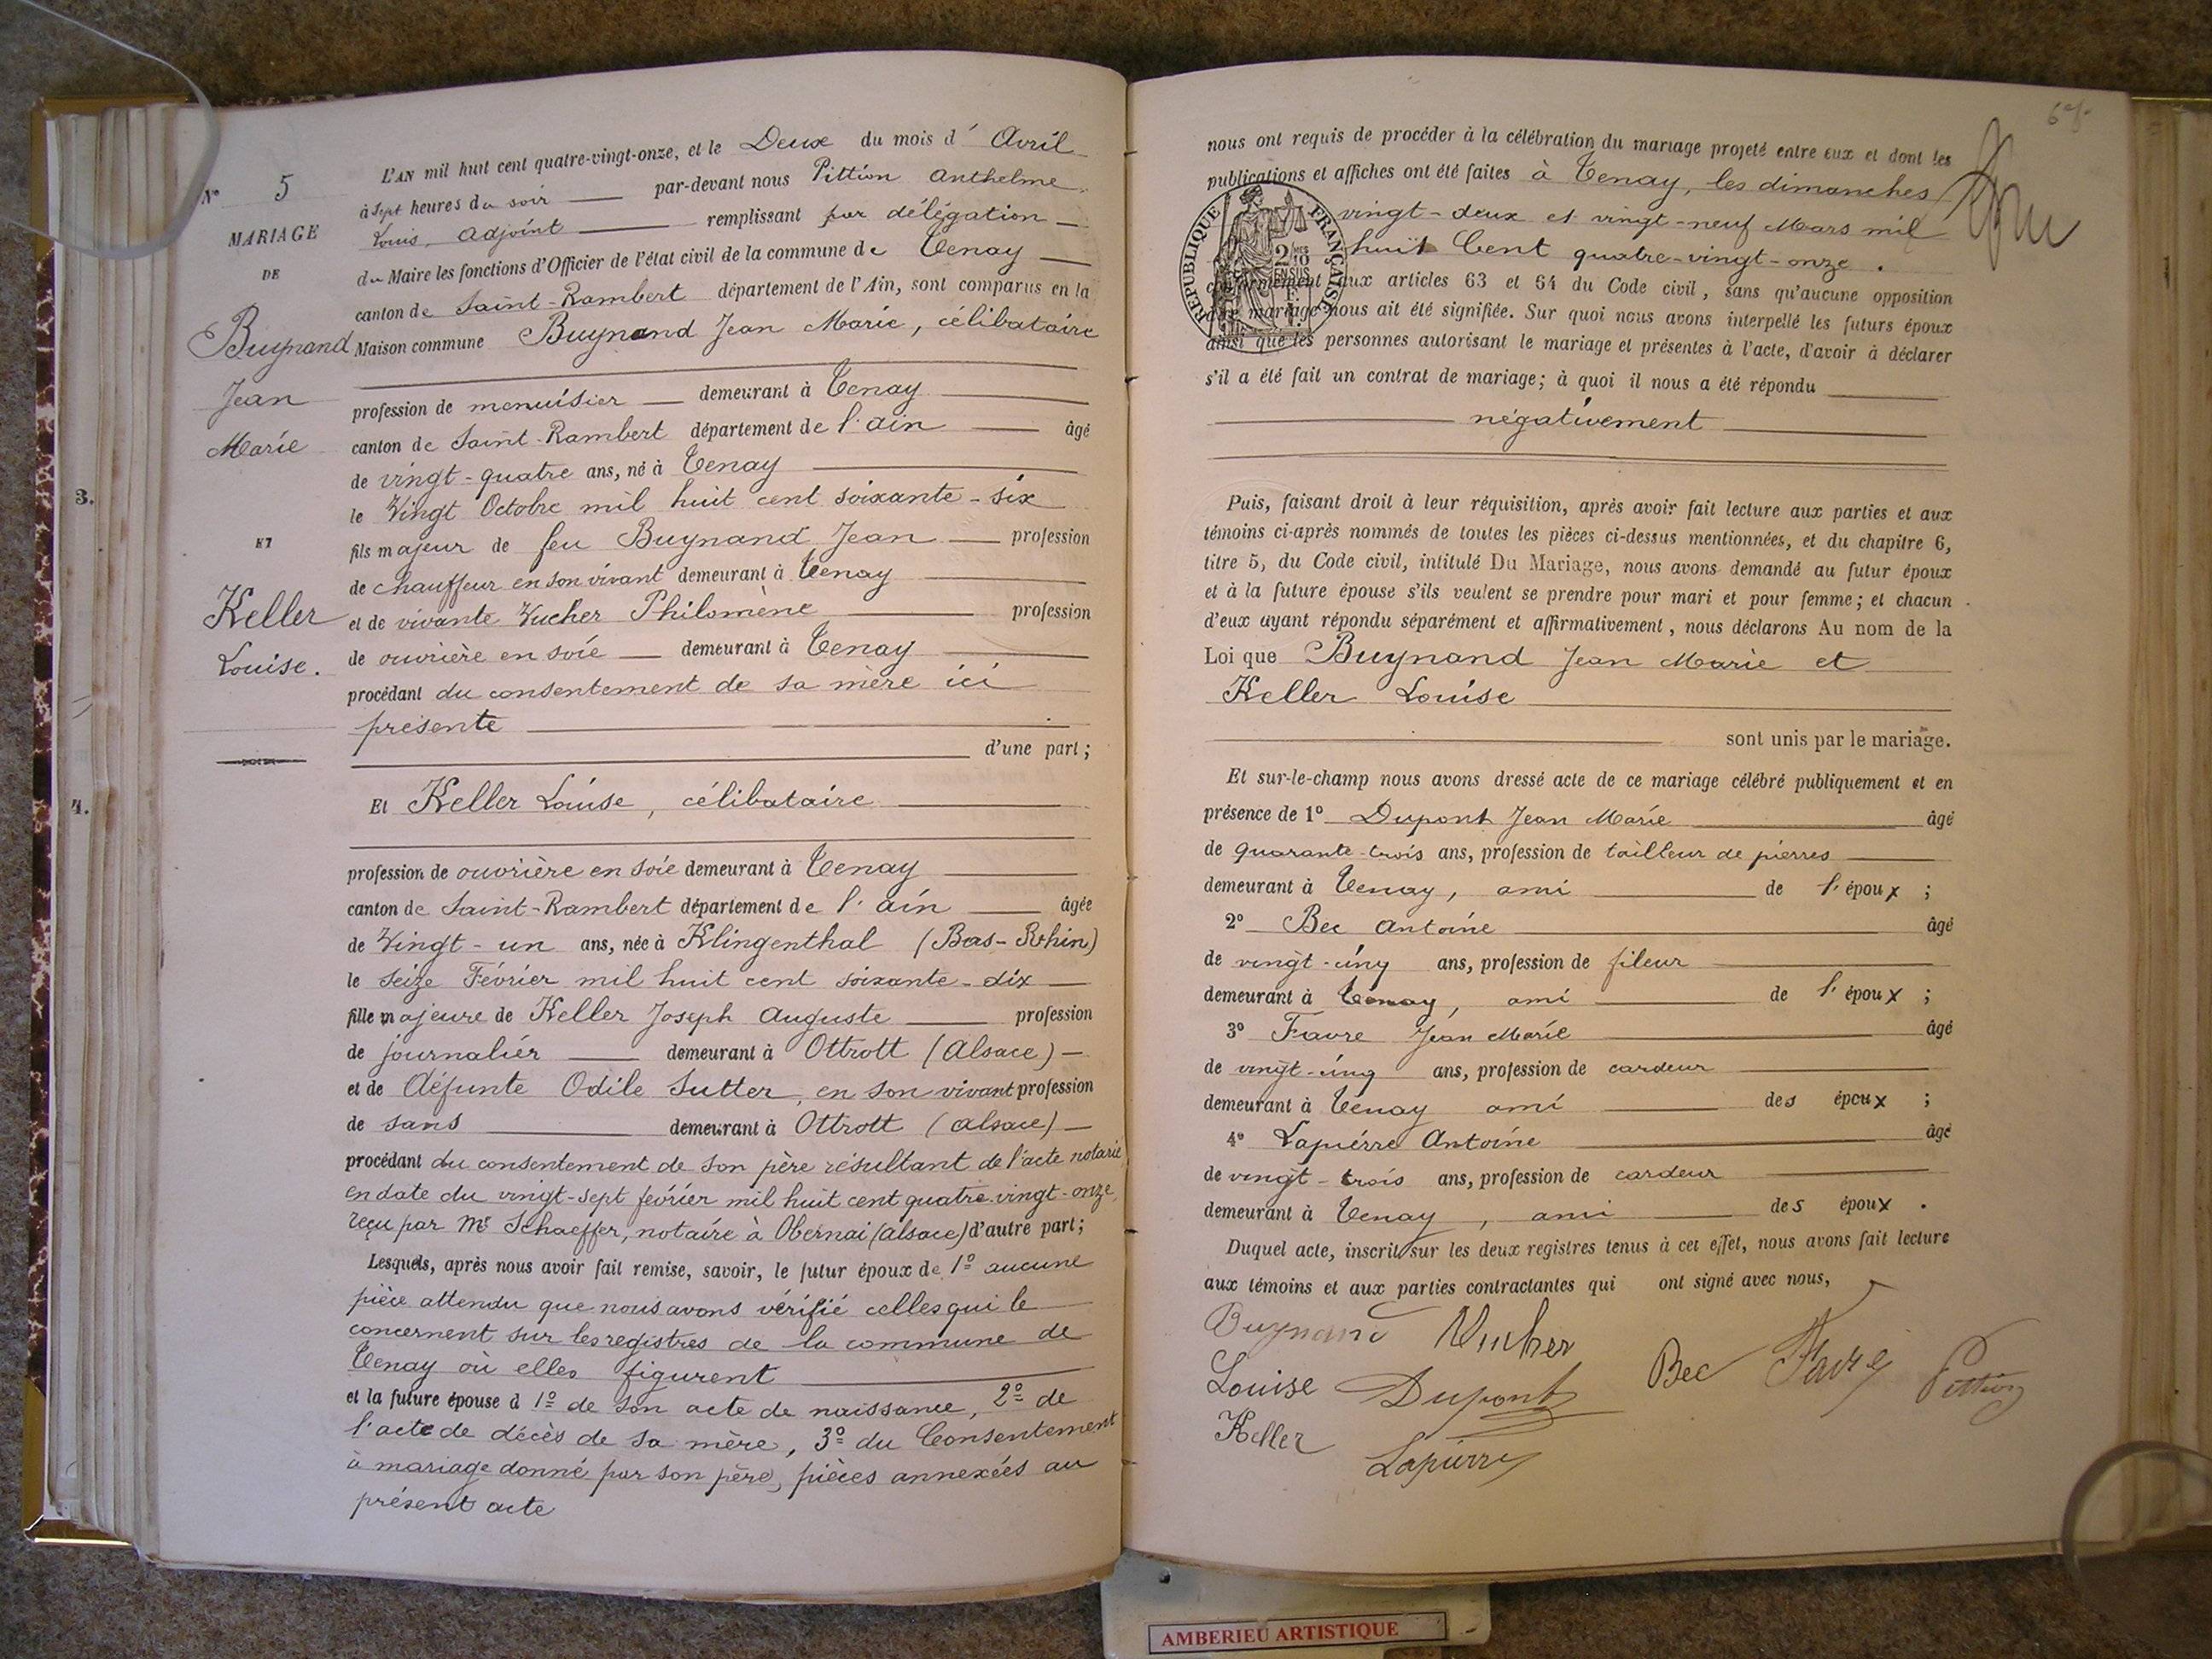 N° 5
MARIAGE
DE
Buynand
Jean
Marie
ET
Keller
Louise.
3.
4.
L'AN mil huit cent quatre-vingt-onze, et le Deux du mois d' Avril
à sept heures du soir par-devant nous Pittion Anthelme
Louis, Adjoint remplissant par délégation
du Maire les fonctions d'Officier de l'état civil de la commune de Tenay
canton de Saint-Rambert département de l'Ain, sont comparus en la
Maison commune Buynand Jean Marie, célibataire
profession de menuisier demeurant à Tenay
canton de Saint-Rambert département de l'ain âgé
de vingt-quatre ans, né à Tenay
le Vingt Octobre mil huit cent soixante-six
fils majeur de feu Buynand Jean profession
de chauffeur en son vivant demeurant à Tenay
et de vivante Vucher Philomène profession
de ouvrière en soie demeurant à Tenay
procédant du consentement de sa mère ici
présente
d'une part;
Et Keller Louise, célibataire
profession de ouvrière en soie demeurant à Tenay
canton de Saint-Rambert département de l'ain âgée
de Vingt-un ans, née à Klingenthal (Bas-Rhin)
le seize Février mil huit cent soixante-dix
fille majeure de Keller Joseph Auguste profession
de journalier demeurant à Ottrott (Alsace)
et de défunte Odile Sutter, en son vivant profession
de sans demeurant à Ottrott (alsace)
procédant du consentement de son père résultant de l'acte notarié
en date du vingt-sept février mil huit cent quatre-vingt-onze,
reçu par Me Schaeffer, notaire à Obernai (alsace) d'autre part;
Lesquels, après nous avoir fait remise, savoir, le futur époux de 1° aucune
pièce attendu que nous avons vérifié celles qui le
concernent sur les registres de la commune de
Tenay où elles figurent
et la future épouse d 1° de son acte de naissance, 2° de
l'acte de décès de sa mère, 3° du Consentement
à mariage donné par son père, pièces annexées au
présent acte
nous ont requis de procéder à la célébration du mariage projeté entre eux et dont les
publications et affiches ont été faites à Tenay, les dimanches
vingt-deux et vingt-neuf Mars mil
huit Cent quatre-vingt-onze.
conformément aux articles 63 et 64 du Code civil, sans qu'aucune opposition
mariage nous ait été signifiée. Sur quoi nous avons interpellé les futurs époux
ainsi que les personnes autorisant le mariage et présentes à l'acte, d'avoir à déclarer
s'il a été fait un contrat de mariage; à quoi il nous a été répondu
négativement
RÉPUBLIQUE FRANÇAISE
Puis, faisant droit à leur réquisition, après avoir fait lecture aux parties et aux
témoins ci-après nommés de toutes les pièces ci-dessus mentionnées, et du chapitre 6,
titre 5, du Code civil, intitulé Du Mariage, nous avons demandé au futur époux
et à la future épouse s'ils veulent se prendre pour mari et pour femme; et chacun
d'eux ayant répondu séparément et affirmativement, nous déclarons Au nom de la
Loi que Buynand Jean Marie et
Keller Louise
sont unis par le mariage.
Et sur-le-champ nous avons dressé acte de ce mariage célébré publiquement et en
présence de 1° Dupont Jean Marie âgé
de quarante-trois ans, profession de tailleur de pierres
demeurant à Tenay, ami de l'époux;
2° Bec Antoine âgé
de vingt-cinq ans, profession de fileur
demeurant à Tenay, ami de l'époux;
3° Favre Jean Marie âgé
de vingt-cinq ans, profession de cardeur
demeurant à Tenay ami des époux;
4° Lapierre Antoine âgé
de vingt-trois ans, profession de cardeur
demeurant à Tenay, ami des époux.
Duquel acte, inscrit sur les deux registres tenus à cet effet, nous avons fait lecture
aux témoins et aux parties contractantes qui ont signé avec nous,
Buynand Vucher
Louise Dupont Bec Favre Pittion
Keller Lapierre
AMBERIEU ARTISTIQUE